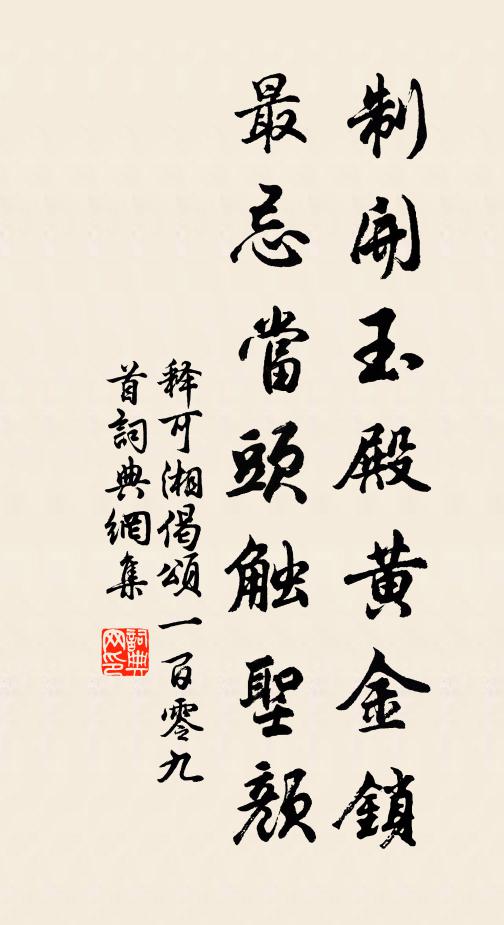 制開玉殿黄金鎖
最忌當頭触聖顏
释可湘偈頌一百零九
首詞典網集
詞典网印